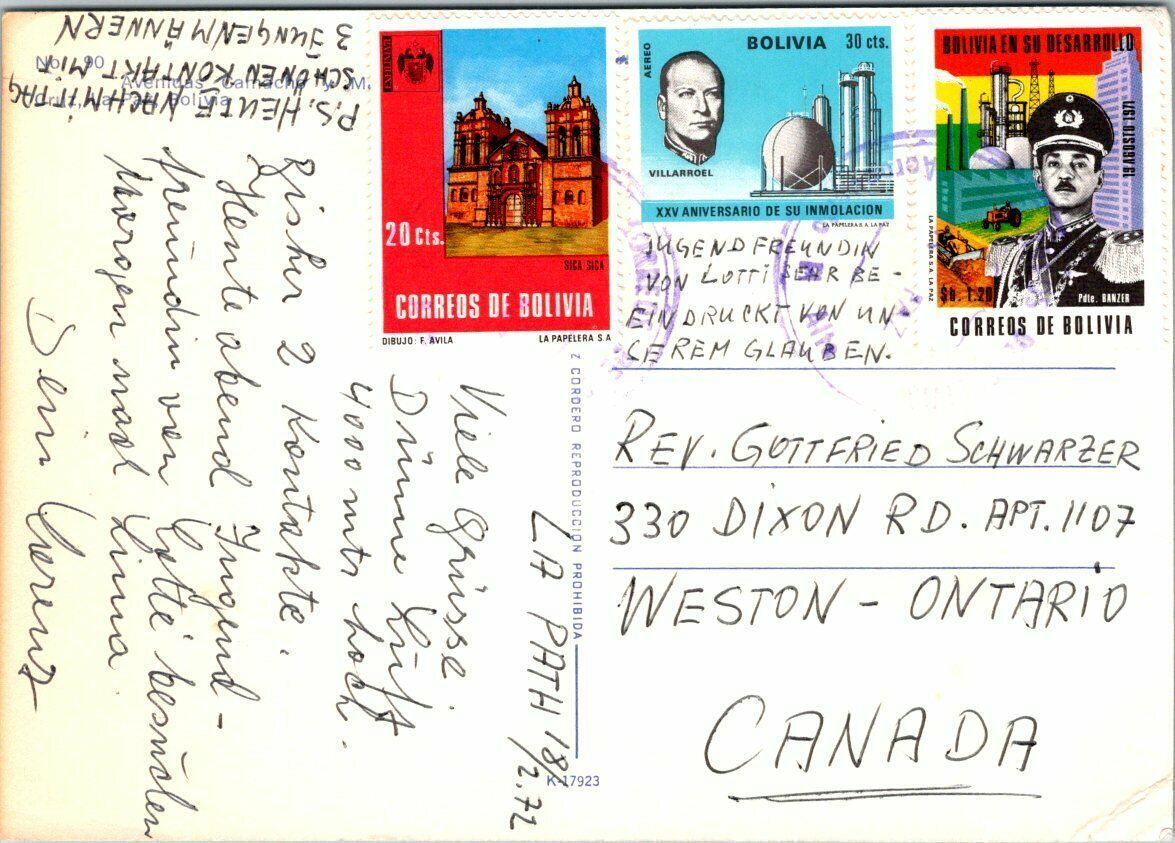 LA PATH 18/2.72
Viele Grüsse.
Dünne Luft
4000 mts hoch.
Bisher 2 Kontakte.
Heute abend Jugend-
freundin von Lotti besuchen
Morgen nach Lima.
Dein Lorenz
P.S. HEUTE NACHMITTAG
SCHÖNEN KONTAKT MIT
3 JUNGEN MÄNNERN
No. 90
Avenidas Camacho y M.
Cruz, La Paz, Bolivia
20 Cts.
SICA SICA
CORREOS DE BOLIVIA
DIBUJO: F. AVILA LA PAPELERA S.A.
AEREO
BOLIVIA 30 cts.
VILLARROEL
XXV ANIVERSARIO DE SU INMOLACION
LA PAPELERA S.A. LA PAZ
BOLIVIA EN SU DESARROLLO
19 AGOSTO 1971
LA PAPELERA S.A. LA PAZ
$b. 1.20
Pdte. BANZER
CORREOS DE BOLIVIA
JUGENDFREUNDIN
VON LOTTI SEHR BE-
EINDRUCKT VON UN-
SEREM GLAUBEN.
Z CORDERO REPRODUCCION PROHIBIDA
K-17923
REV. GOTTFRIED SCHWARZER
330 DIXON RD. APT. 1107
WESTON - ONTARIO
CANADA